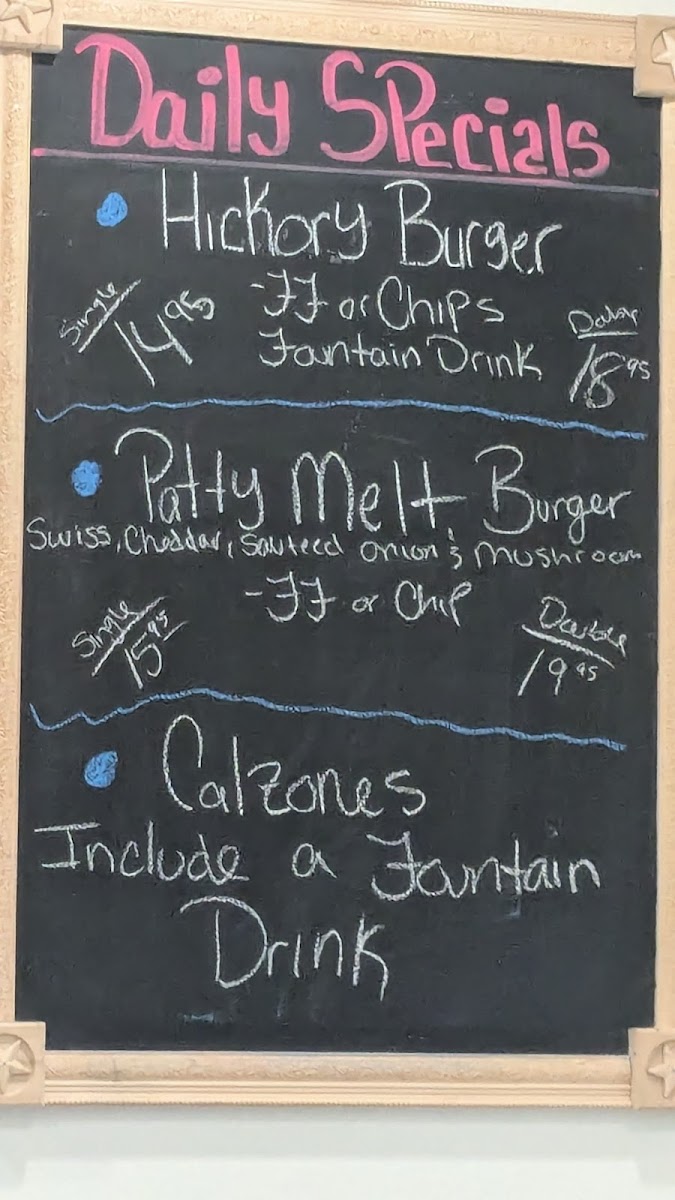 Daily Specials
Hickory Burger
Single 14.95
-FF or Chips
Fountain Drink
Double 18.95
Patty Melt Burger
Swiss, Cheddar, Sauteed onion & Mushroom
-FF or Chip
Single 15.95
Double 19.95
Calzones
Include a Fountain
Drink